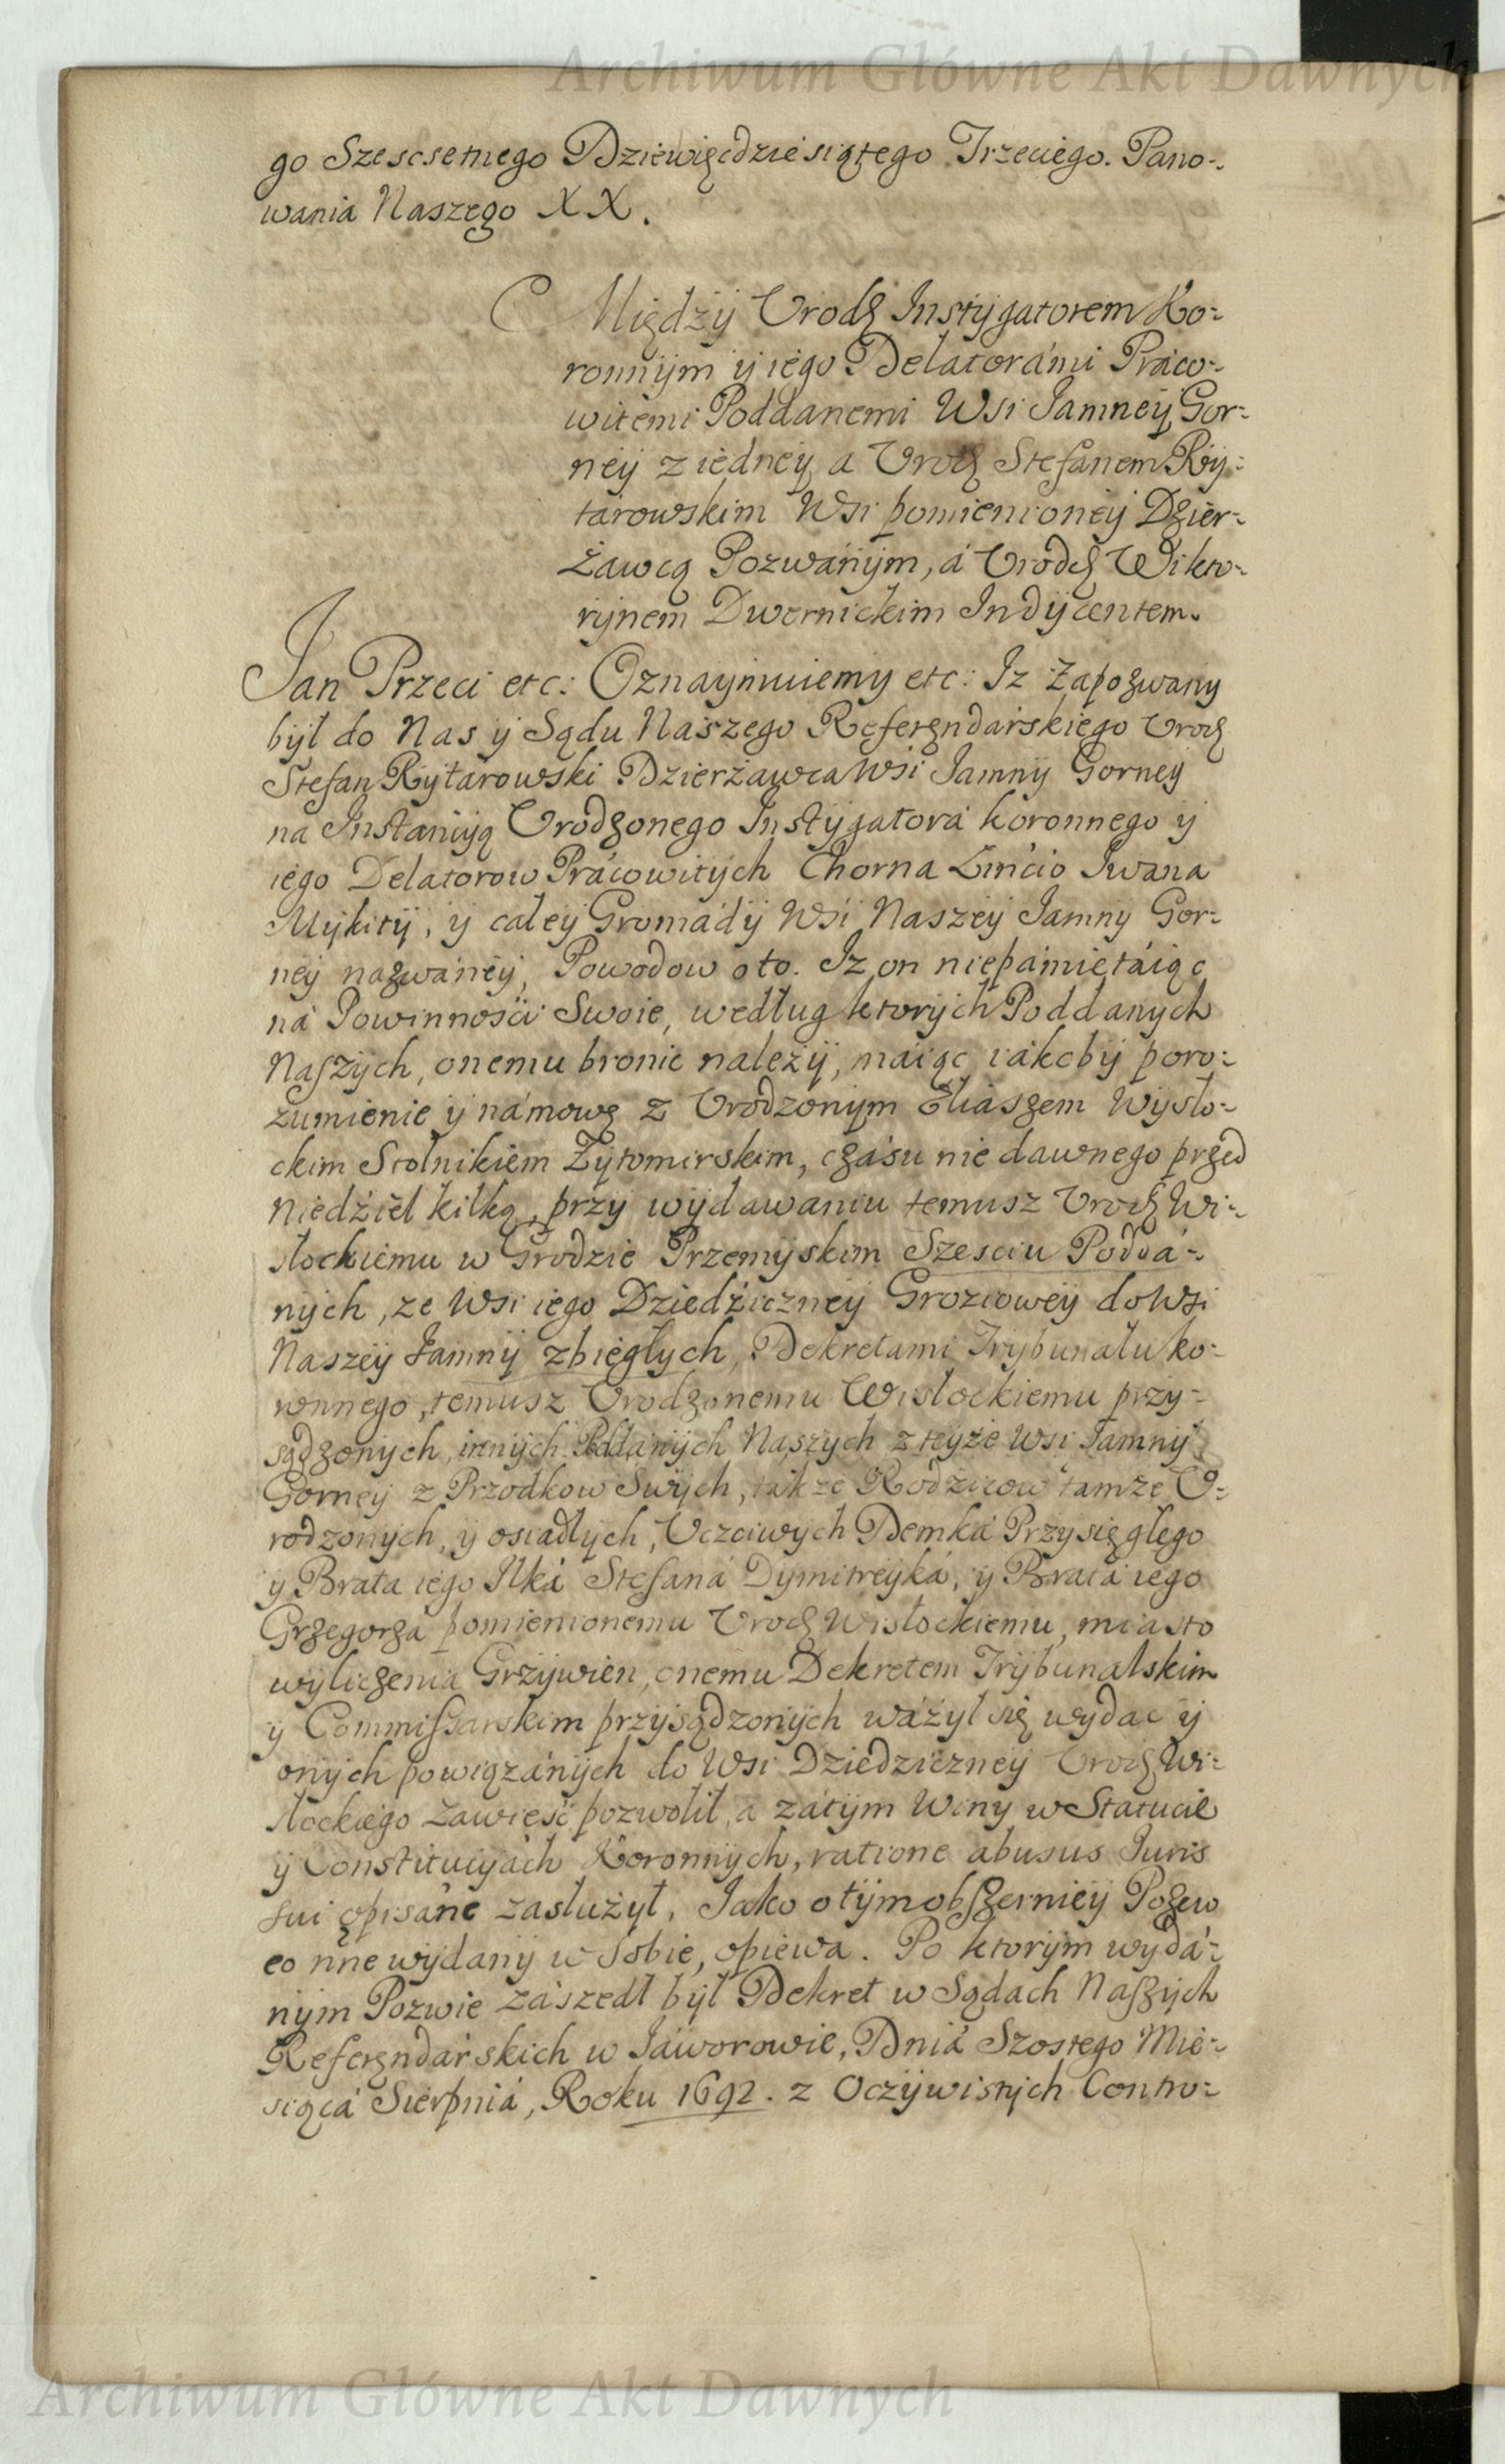 Archiwum Główne Akt Dawnych
go Szescsetnego Dziewięcdziesiątego Trzeciego. Pano-
wania Naszego XX.
Między Urodz Instygatorem Ko-
ronnym y iego Delatorámi Práco-
witemi Poddanemi Wsi Jamney Gor-
ney z iedney a Urodz Stefanem Ry-
tarowskim Wsi pomienioney Dzier-
żawcą Pozwánym, á Urodz Wikto-
rynem Dwernickim Indycentem.
Jan Trzeci etc: Oznaymuiemy etc: Iz Zapozwany
był do Nas y Sądu Naszego Referendarskiego Urodz
Stefan Rytarowski Dzierżawca Wsi Jamny Gorney
na Instancyą Urodzonego Instygatorá koronnego y
iego Delatorow Prácowitych Chorna Iwana
Mykity, y całey Gromády Wsi Naszey Jamny Gor-
ney nazwáney, Powodow oto. Iz on niepámiętáiąc
ná Powinnośći Swoie, według ktorych Poddanych
Naszych, onemu bronic nalezy, máiąc iákoby poro-
zumienie y námowę z Urodzonym Eliaszem Wysło-
ckim Stolnikiem Zytomirskim, czásu nie dawnego przed
Niedźiel kilką, przy wydawaniu temusz Urodz Wi-
słockiemu w Grodzie Przemyskim Szesciu Poddá-
nych, ze Wsi iego Dziedźiczney Groziowey do Wsi
Naszey Jamny zbiegłych, Dekretami Trybunału ko-
ronnego, temusz Urodzonemu Wisłockiemu przy-
sądzonych, innych Poddanych Naszych z teyże Wsi Jamny
Gorney z Przodkow Swych, także Rodzicow tamże U-
rodzonych, y osiadłych, Uczciwych Demká Przysięgłego
y Brata iego Ilká Stefaná Dymitreyká, y Bratá iego
Grzegorzá pomienionemu Urodz Wisłockiemu, miasto
wyliczenia Grzywien, onemu Dekretem Trybunalskim
y Commissarskim przysądzonych wáżył się wydac y
onych powiązánych do Wsi Dziedziczney Urodz Wi-
słockiego zawieść pozwolił, a zátym Winy w Statucie
y Constitucyách Koronnych, ratione abusus Iuris
sui opisáne zasłużył. Jako o tym obszerniey Pozew
eo nne wydany w sobie, opiewa. Po ktorym wydá-
nym Pozwie zászedł był Dekret w Sądach Naszych
Referendárskich w Jáworowie, Dniá Szostego Mie-
siącá Sierpniá, Roku 1692. z Oczywistych Contro-
Archiwum Główne Akt Dawnych